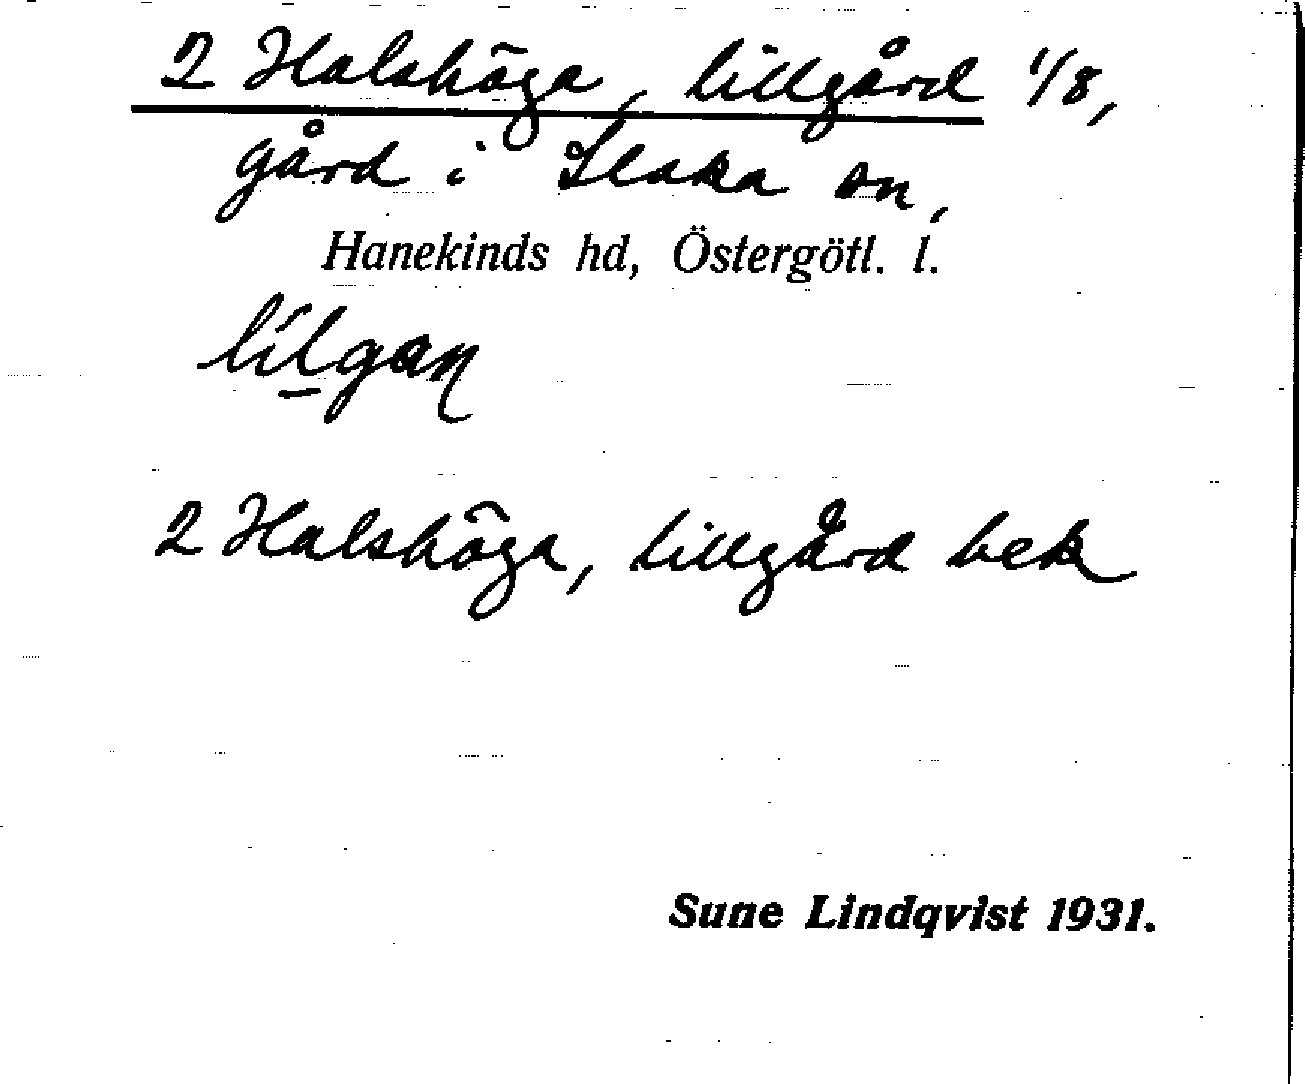 2 Halshöga, lillgård 1/8,
gård i Slaka sn,
Hanekinds hd, Östergötl. l.
lilgaɳ
2 Halshöga, lillgård bek
Sune Lindqvist 1931.